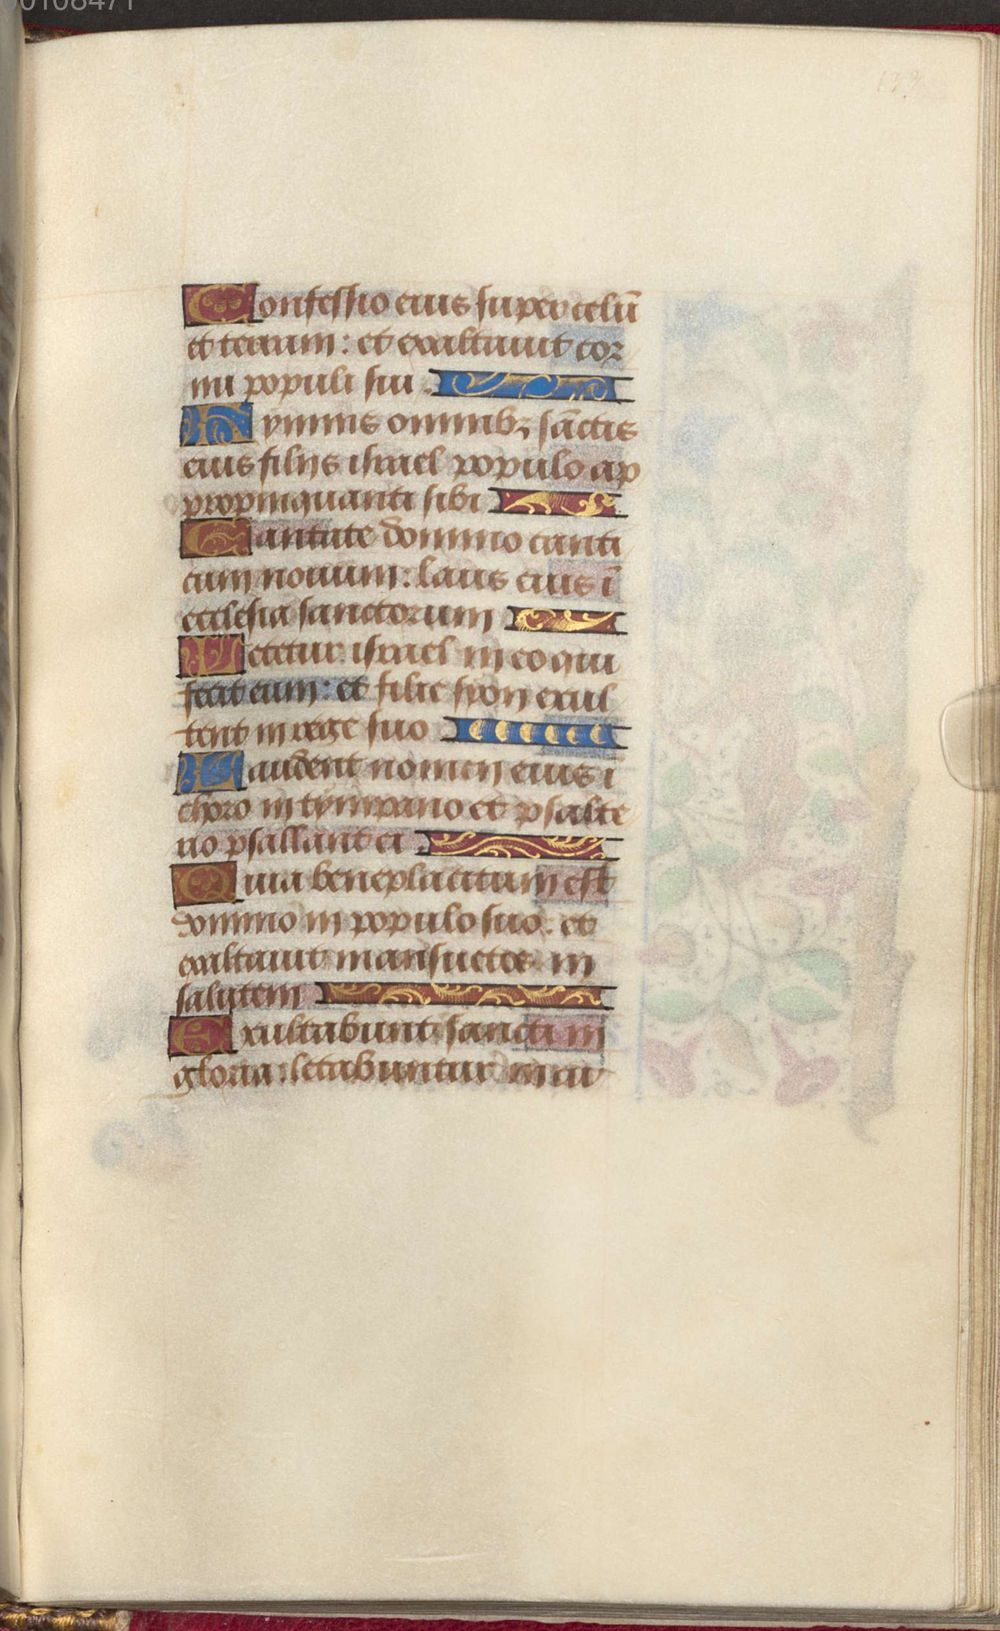 Confessio eius super celū
et terram : et exaltauit cor
nu populi sui .
Hymnus omnibꝫ sāctis
eius filijs israel populo ap
propinquanti sibi
Cantate domino canti
cum nouum : laus eius ī
ecclesia sanctorum
Letetur israel in eo qui
fecit eum : et filie syon exul
tent in rege suo
Laudent nomen eius ī
choro in tympano et psalte
rio psallant ei .
Quia beneplacitum est
domino in populo suo . et
exaltauit mansuetos in
salutem
Exultabunt sancti in
gloria : letabuntur in cu